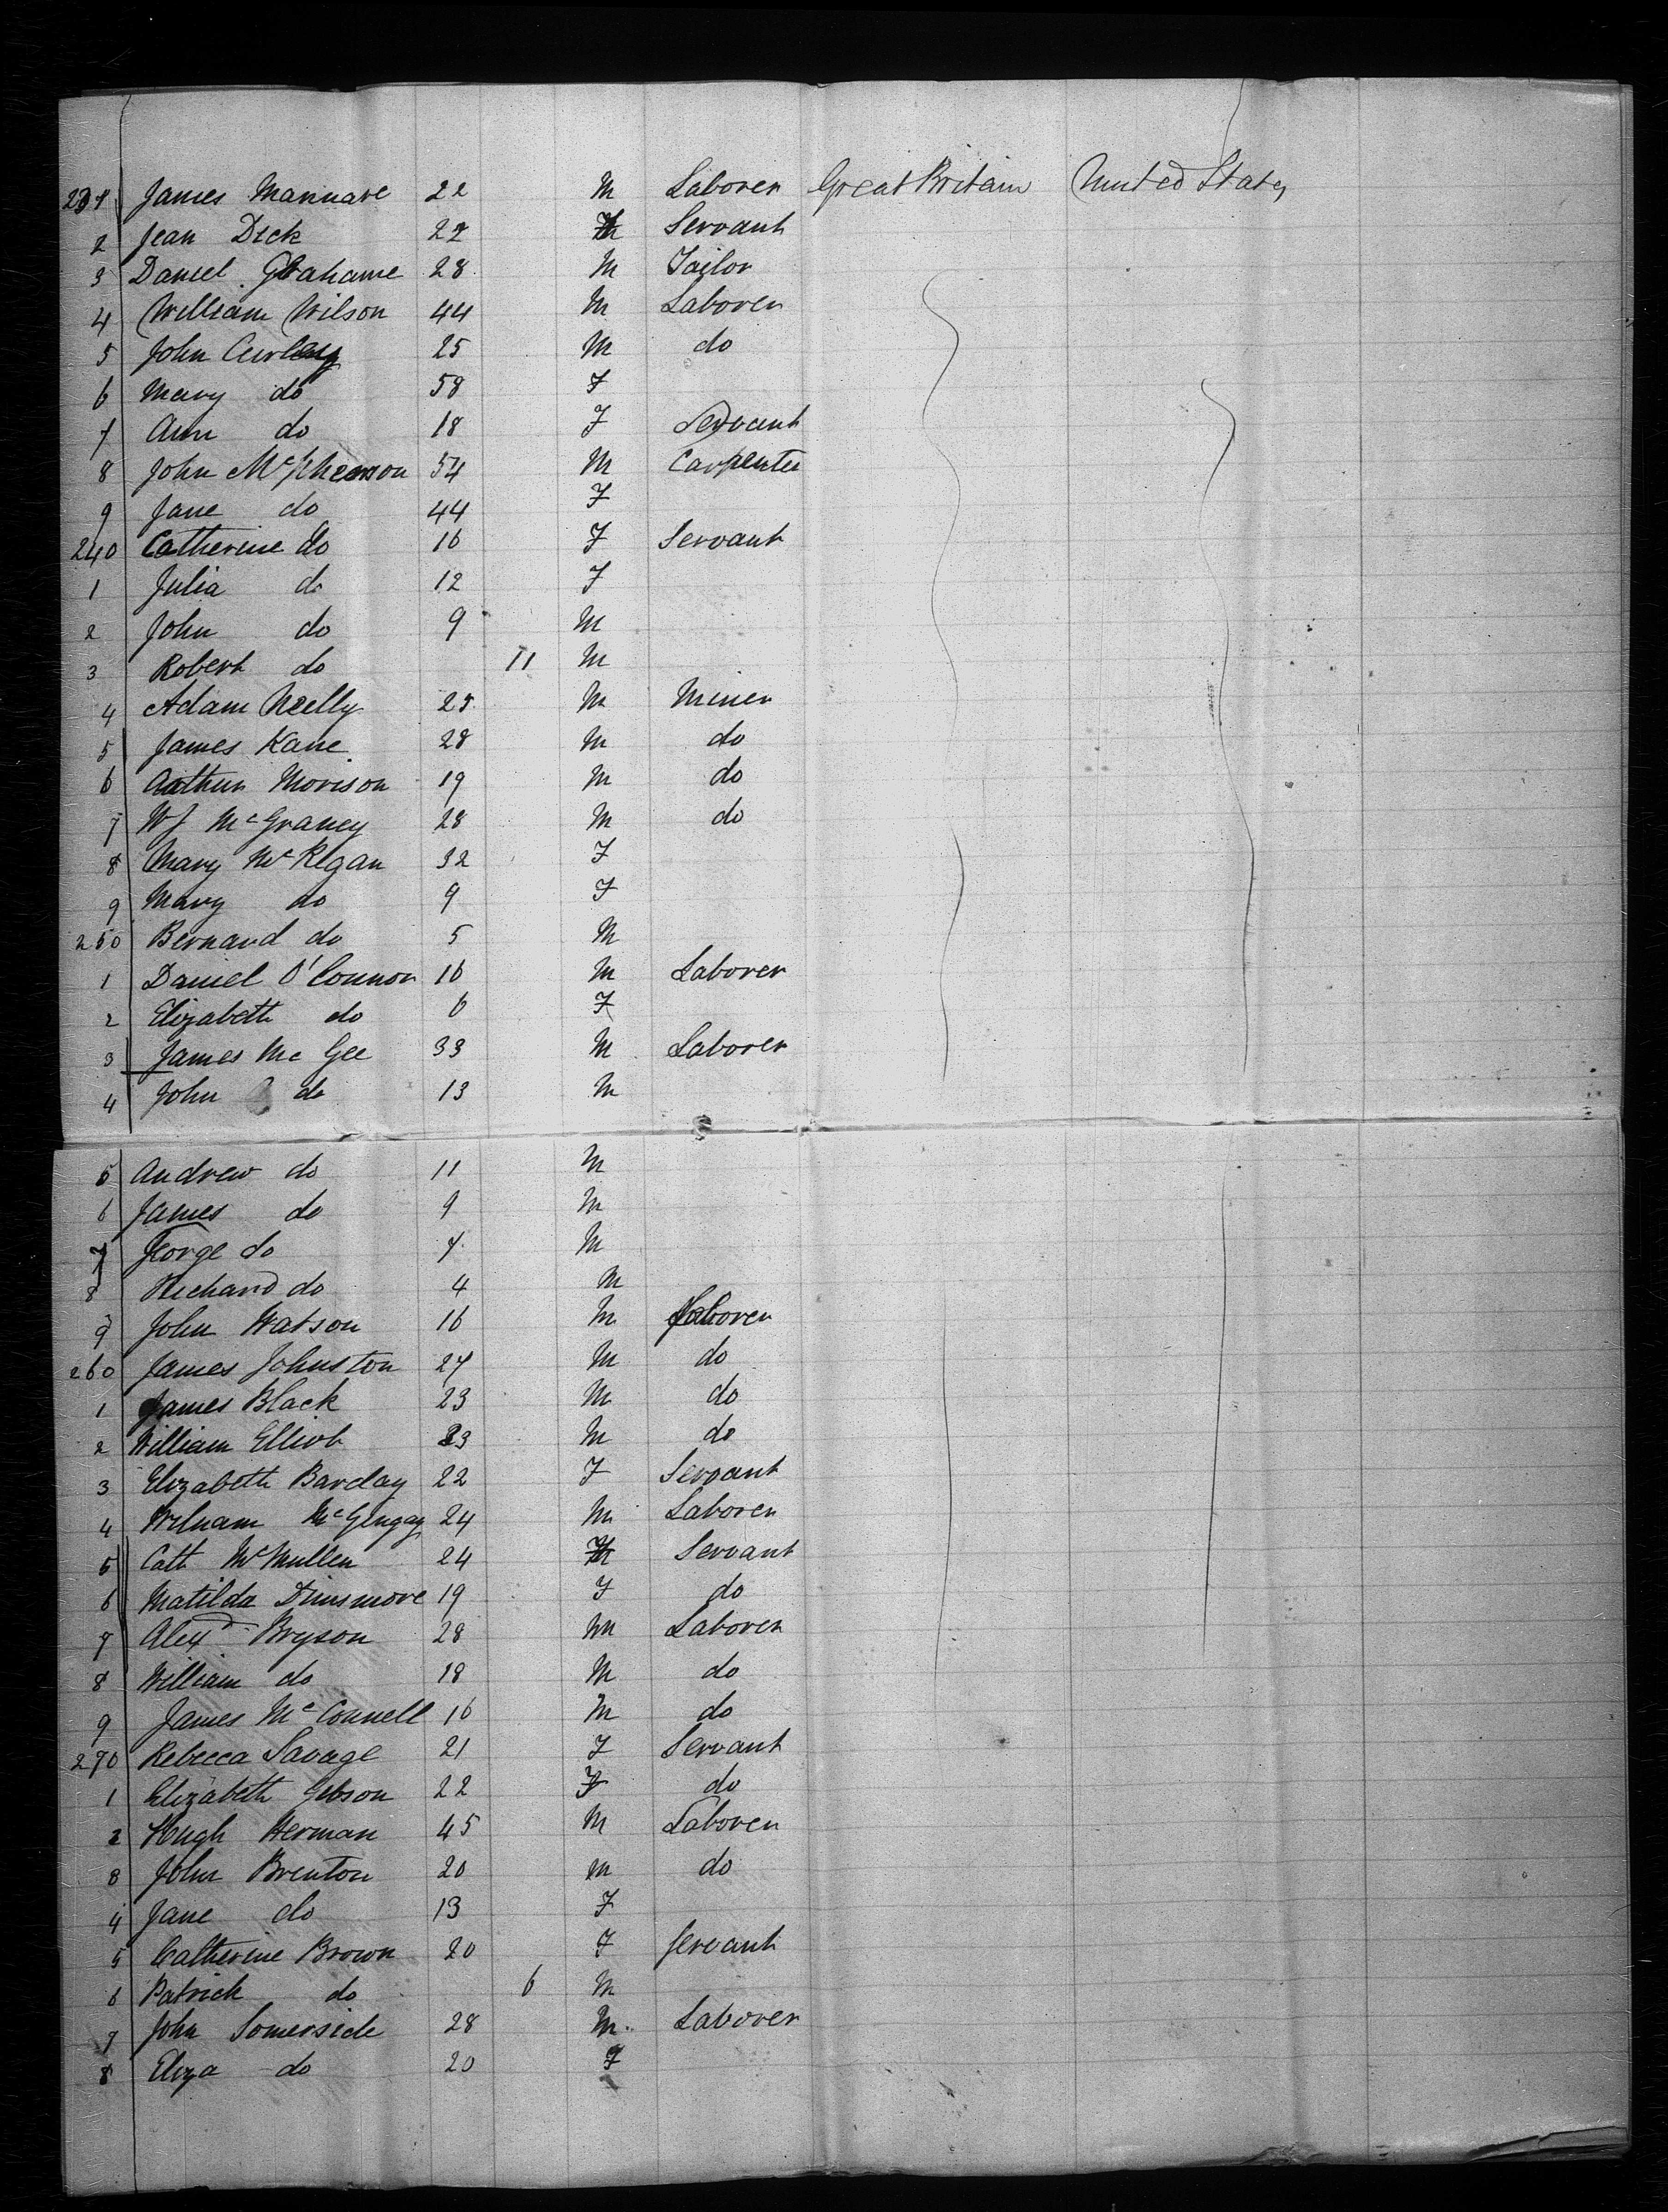 231 James Mannare 22 M Laborer Great Britain United States
2 Jean Dick 22 F Servant
3 Daniel Grahame 28 M Tailor
4 William Wilson 44 M Laborer
5 John Curley 25 M do
6 Mary do 58 F
7 Ann do 18 F Servant
8 John McPherson 54 M Carpenter
9 Jane do 44 F
240 Catherine do 16 F Servant
1 Julia do 12 F
2 John do 9 M
3 Robert do 11 M
4 Adam Neelly 25 M Miner
5 James Kane 28 M do
6 Arthur Morison 19 M do
7 WJ McGraney 28 M do
8 Mary McRegan 32 F
9 Mary do 9 F
250 Bernard do 5 M
1 Daniel O'Connor 16 M Laborer
2 Elizabeth do 6 F
3 James McGee 33 M Laborer
4 John do 13 M
5 Andrew do 11 M
6 James do 9 M
7 George do 7 M
8 Richard do 4 M
9 John Watson 16 M Laborer
260 James Johnston 27 M do
1 James Black 23 M do
2 William Elliot 23 M do
3 Elizabeth Barclay 22 F Servant
4 William 24 M Laborer
5 Cath McMullen 24 F Servant
6 Matilda Dinsmore 19 F do
7 Alexd Bryson 28 M Laborer
8 William do 18 M do
9 James McConnell 16 M do
270 Rebecca Savage 21 F Servant
1 Elizabeth Gibson 22 F do
2 Hugh Herman 45 M Laborer
3 John Brenton 20 M do
4 Jane do 13 F
5 Catherine Brown 20 F Servant
6 Patrick do 6 M
7 John Somerside 28 M Laborer
8 Eliza do 20 F